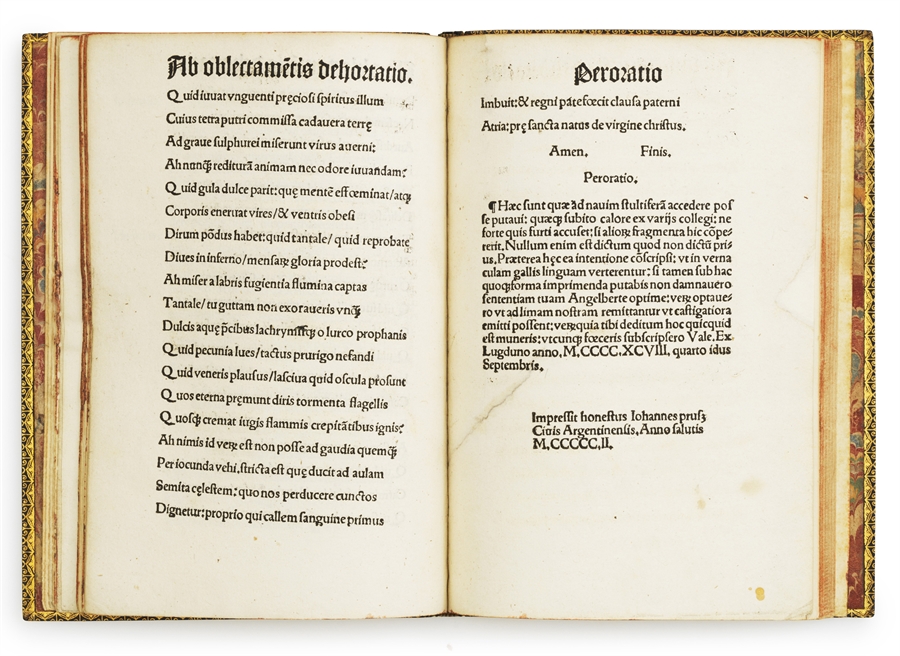 Ab oblectamētis dehortatio.
Quid iuuat vnguenti pręciosi spiritus illum
Cuius tetra putri commissa cadauera terrę
Ad graue sulphurei miserunt virus auerni:
Ah nunꝙ̄ rediturā animam nec odore iuuandam?
Quid gula dulce parit: quę mentē effœminat/atꝙ
Corporis eneruat vires/& ventris obesi
Dirum pōdus habet: quid tantale/ quid reprobate
Diues in inferno/mensarꝝ gloria prodest?
Ah miser a labris fugientia flumina captas
Tantale/tu guttam non exoraueris vnꝙ̄
Dulcis aquę p̄cibus lachrymisꝙ o lurco prophanis
Quid pecunia lues/tactus prurigo nefandi
Quid veneris plausus/lasciua quid oscula prosunt
Quos eterna pręmunt diris tormenta flagellis
Quosꝙ cremat iugis flammis crepitātibus ignis?
Ah nimis id verꝝ est non posse ad gaudia quemꝙ̄
Per iocunda vehi, stricta est quę ducit ad aulam
Semita cęlestem: quo nos perducere cunctos
Dignetur: proprio qui callem sanguine primus
Peroratio
Imbuit: & regni patefœcit clausa paterni
Atria: prę sancta natus de virgine christus.
Amen. Finis.
Peroratio.
¶ Hæc sunt quæ ad nauim stultiferā accedere pos
se putaui: quæꝙ subito calore ex varijs collegi: ne
forte quis furti accuset: si aliorꝝ fragmenta hic cōpe-
rerit. Nullum enim est dictum quod non dictū pri-
us. Præterea hęc ea intentione cōscripsi: vt in verna
culam gallis linguam verterentur: si tamen sub hac
quoꝙ forma imprimenda putabis non damnauero
sententiam tuam Angelberte optime: verꝝ optaue-
ro vt ad limam nostram remittantur vt castigatiora
emitti possent: verꝝ quia tibi deditum hoc quicquid
est muneris: vtcunꝙ fœceris subscripsero Vale. Ex
Lugduno anno, M,CCCC,XCVIII, quarto idus
Septembris.
Impressit honestus Iohannes prusꝫ
Ciuis Argentinensis, Anno salutis
M,CCCCC,II.